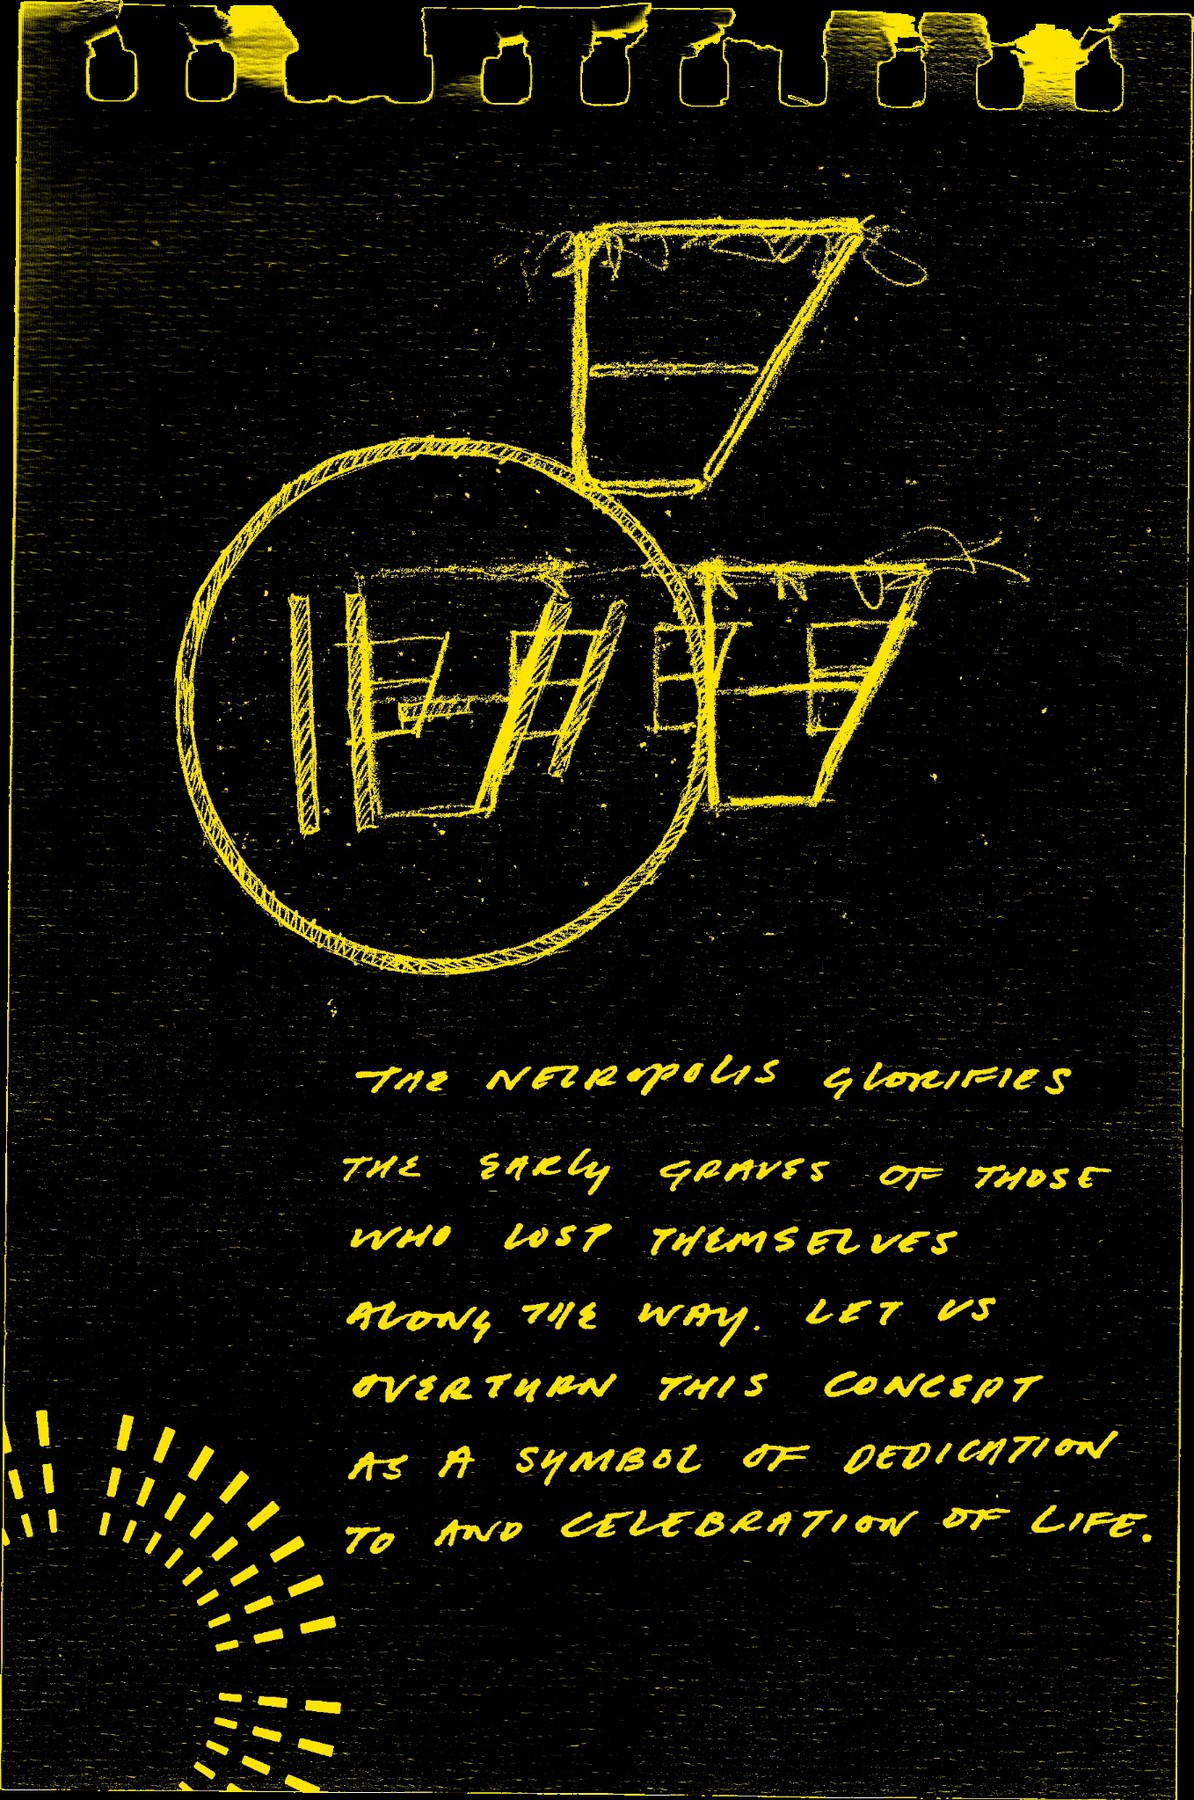 THE NECROPOLIS GLORIFIES
THE EARLY GRAVES OF THOSE
WHO LOST THEMSELVES
ALONG THE WAY. LET US
OVERTURN THIS CONCEPT
AS A SYMBOL OF DEDICATION
TO AND CELEBRATION OF LIFE.